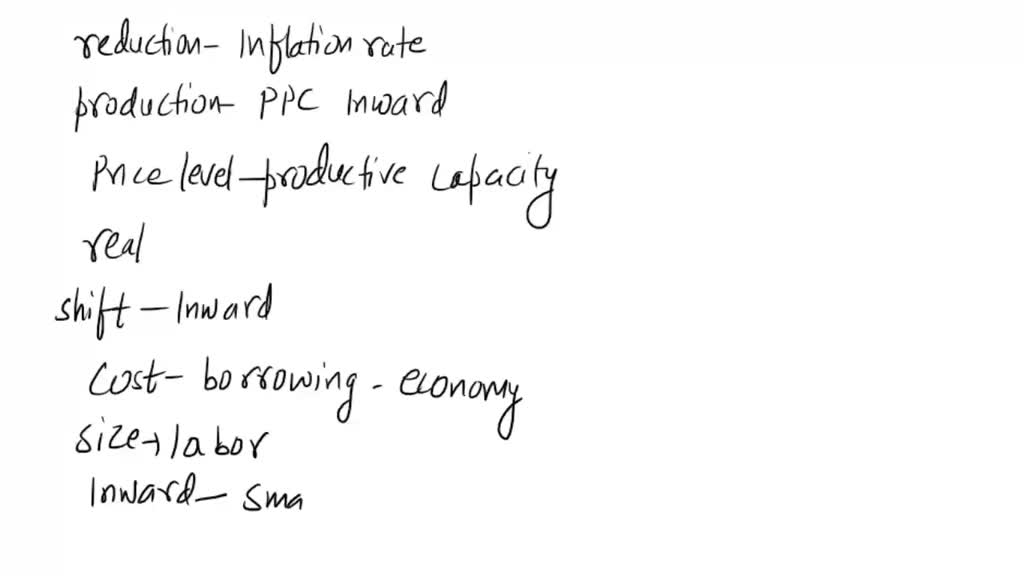 reduction- Inflation rate
production- PPC Inward
Price level-productive capacity
real
shift - Inward
Cost- borrowing - economy
size→labor
Inward- sma